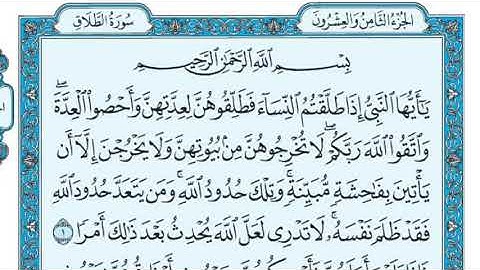 الجُزْءُ الثَّامِنُ وَالعِشْرُونَ
سُورَةُ الطَّلَاقِ
بِسْمِ اللَّهِ الرَّحْمَٰنِ الرَّحِيمِ
يَٰٓأَيُّهَا ٱلنَّبِىُّ إِذَا طَلَّقْتُمُ ٱلنِّسَآءَ فَطَلِّقُوهُنَّ لِعِدَّتِهِنَّ وَأَحْصُوا۟ ٱلْعِدَّةَ ۖ
وَٱتَّقُوا۟ ٱللَّهَ رَبَّكُمْ ۖ لَا تُخْرِجُوهُنَّ مِنۢ بُيُوتِهِنَّ وَلَا يَخْرُجْنَ إِلَّآ أَن
يَأْتِينَ بِفَٰحِشَةٍ مُّبَيِّنَةٍ ۚ وَتِلْكَ حُدُودُ ٱللَّهِ ۚ وَمَن يَتَعَدَّ حُدُودَ ٱللَّهِ
فَقَدْ ظَلَمَ نَفْسَهُۥ ۚ لَا تَدْرِى لَعَلَّ ٱللَّهَ يُحْدِثُ بَعْدَ ذَٰلِكَ أَمْرًا ١